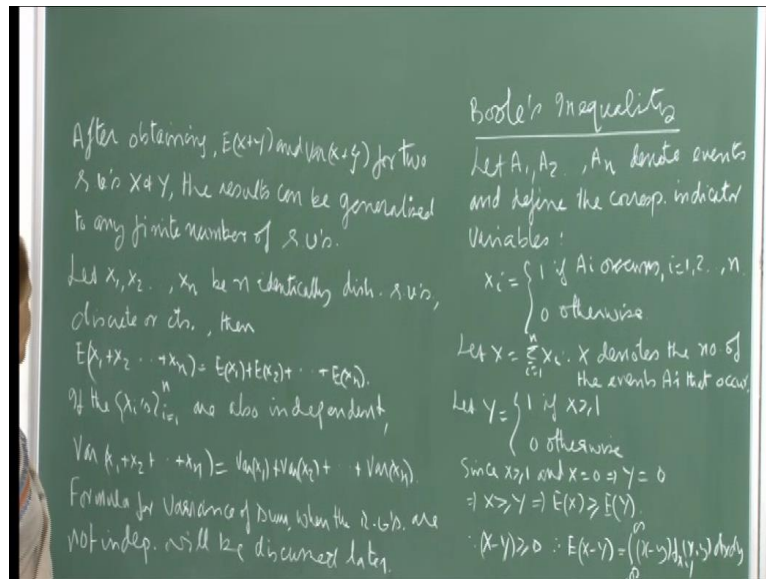 After obtaining, E(X+Y) and Var(X+Y) for two
r.v's X & Y, the results can be generalised
to any finite number of r.v's.
Let X₁, X₂ . . , Xₙ be n identically dist. r.v's,
discrete or cts., then
E(X₁+X₂ ⋯ +Xₙ) = E(X₁)+E(X₂)+ ⋯ +E(Xₙ).
If the {Xᵢ's}ᵢ₌₁ⁿ are also independent,
Var(X₁+X₂+ ⋯ +Xₙ) = Var(X₁)+Var(X₂)+ ⋯ +Var(Xₙ).
Formula for Variance of sum, when the r.v's. are
not indep. will be discussed later.
Boole's Inequality
Let A₁, A₂ . . , Aₙ denote events
and define the corresp. indicator
variables :
Xᵢ = { 1 if Aᵢ occurs, i=1,2 . . , n.
0 otherwise
Let X = Σᵢ₌₁ⁿ Xᵢ. X denotes the no. of
the events Aᵢ that occur.
Let Y = { 1 if X≥1
0 otherwise
Since X≥1 and X=0 ⇒ Y=0
⇒ X≥Y ⇒ E(X) ≥ E(Y).
∵ (X-Y)≥0 ∴ E(X-Y) = ∫∫(x-y)f(x,y) dxdy